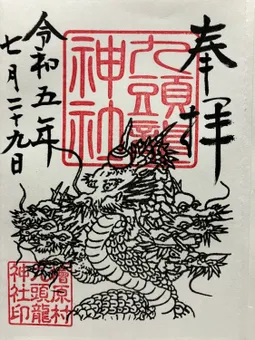 奉拝
九頭龍
神社
令和五年
七月二十九日
檜原村
九頭龍
神社印